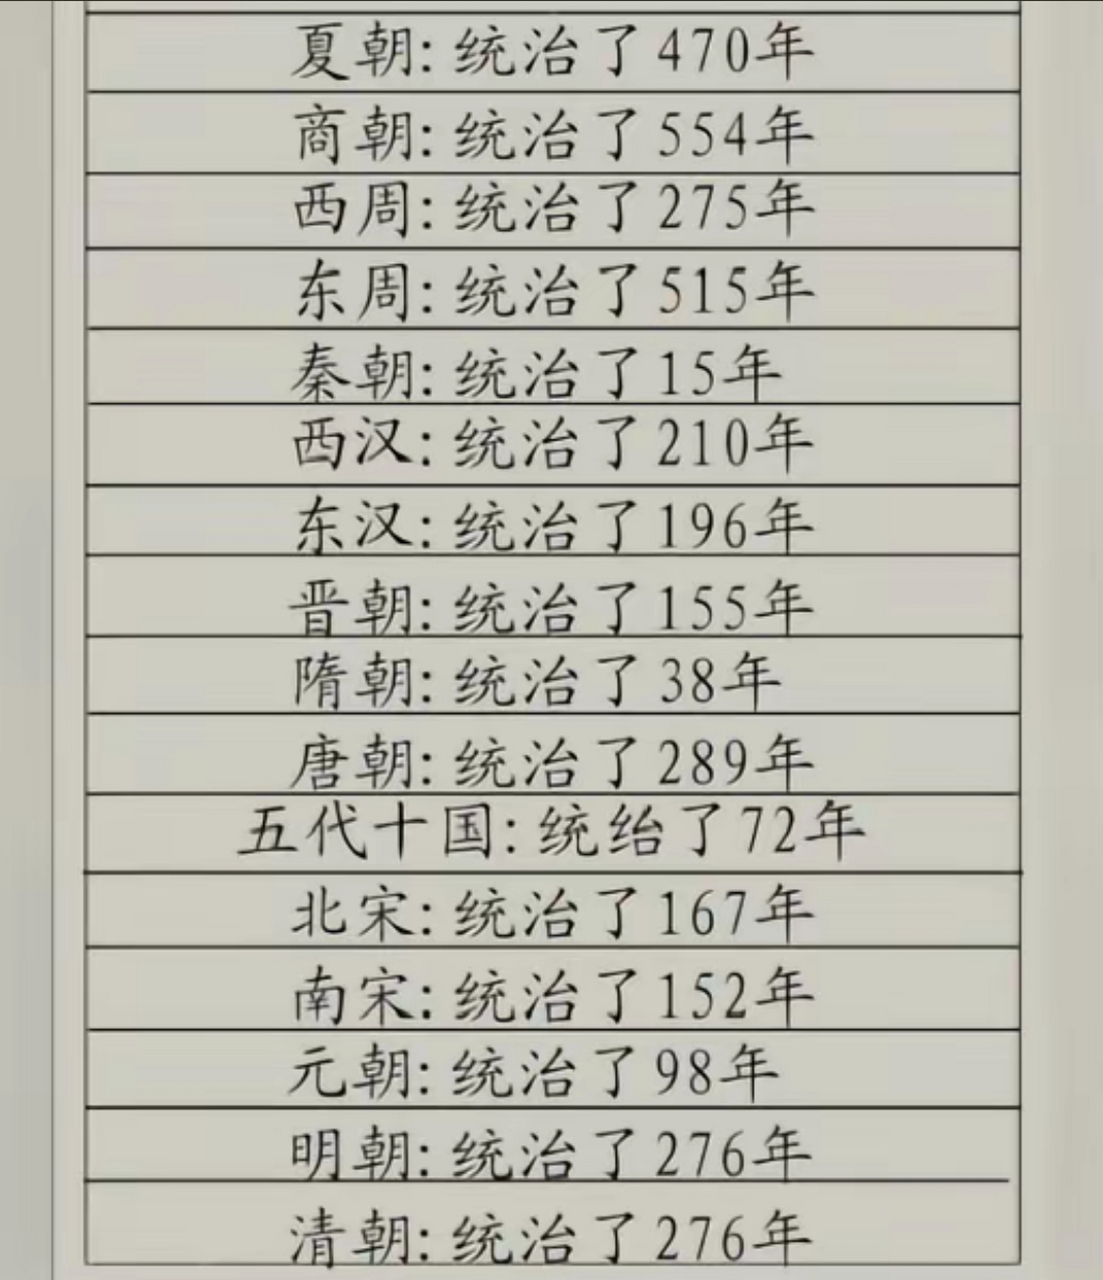 夏朝:统治了470年
商朝:统治了554年
西周:统治了275年
东周:统治了515年
秦朝:统治了15年
西汉:统治了210年
东汉:统治了196年
晋朝:统治了155年
隋朝:统治了38年
唐朝:统治了289年
五代十国:统绐了72年
北宋:统治了167年
南宋:统治了152年
元朝:统治了98年
明朝:统治了276年
清朝:统治了276年